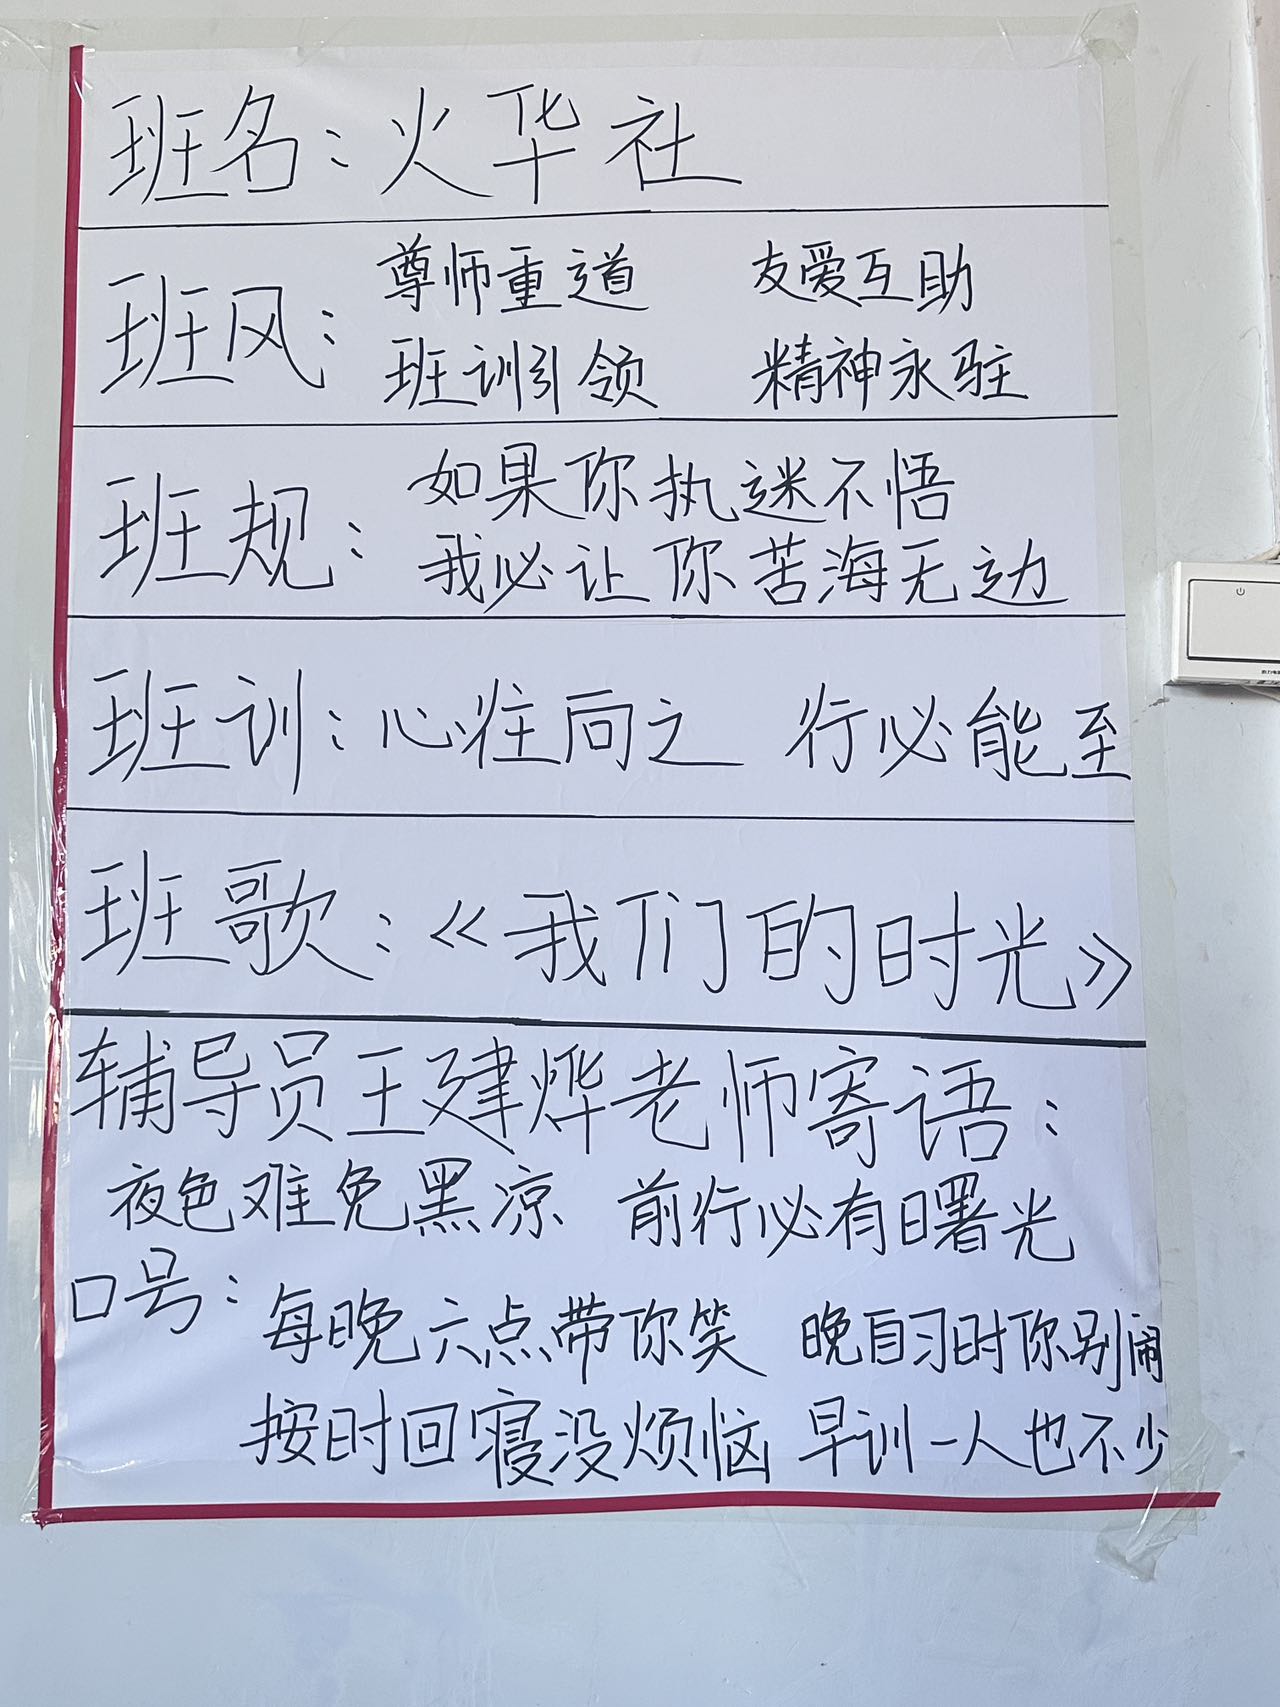 班名：火华社
班风：尊师重道 友爱互助
班训引领 精神永驻
班规：如果你执迷不悟
我必让你苦海无边
班训：心往向之 行必能至
班歌：《我们的时光》
辅导员王建烨老师寄语：
夜色难免黑凉 前行必有曙光
口号：每晚六点带你笑 晚自习时你别闹
按时回寝没烦恼 早训一人也不少